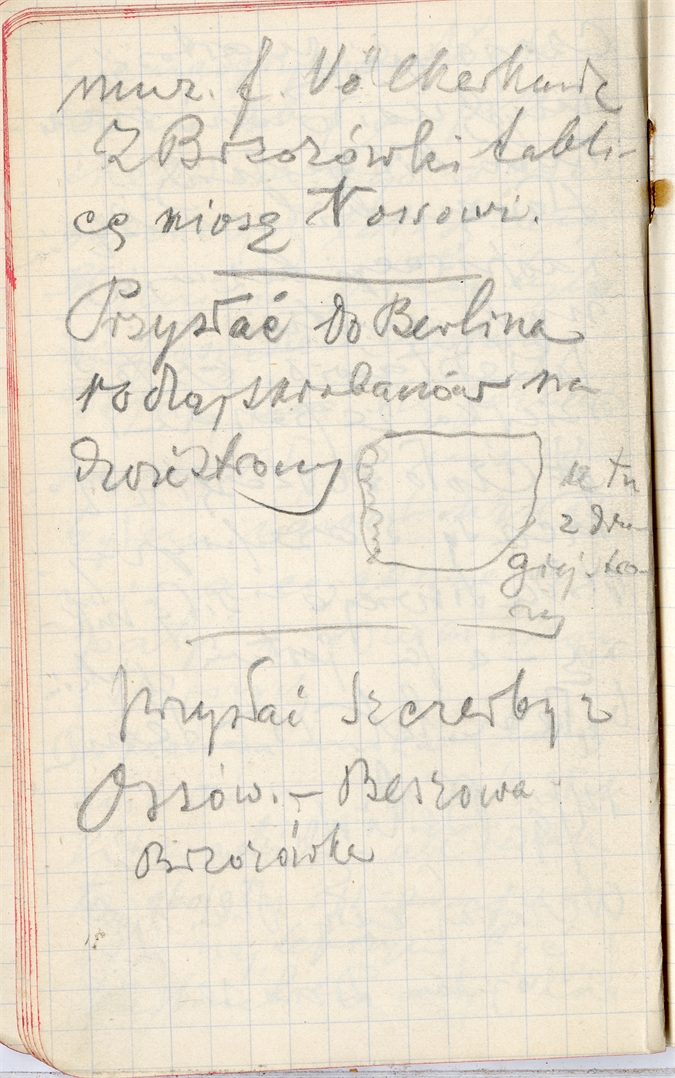 muz. f. Völkerkunde
Z Brzozówki tabli-
cę niosę Nossowi.
Przysłać do Berlina
10 dłaj skrobaczów na
dwie strony
tu
z dru-
giej stro-
ny
przysłać szczerby z
Ossów. – Beszowa
Brzozówka